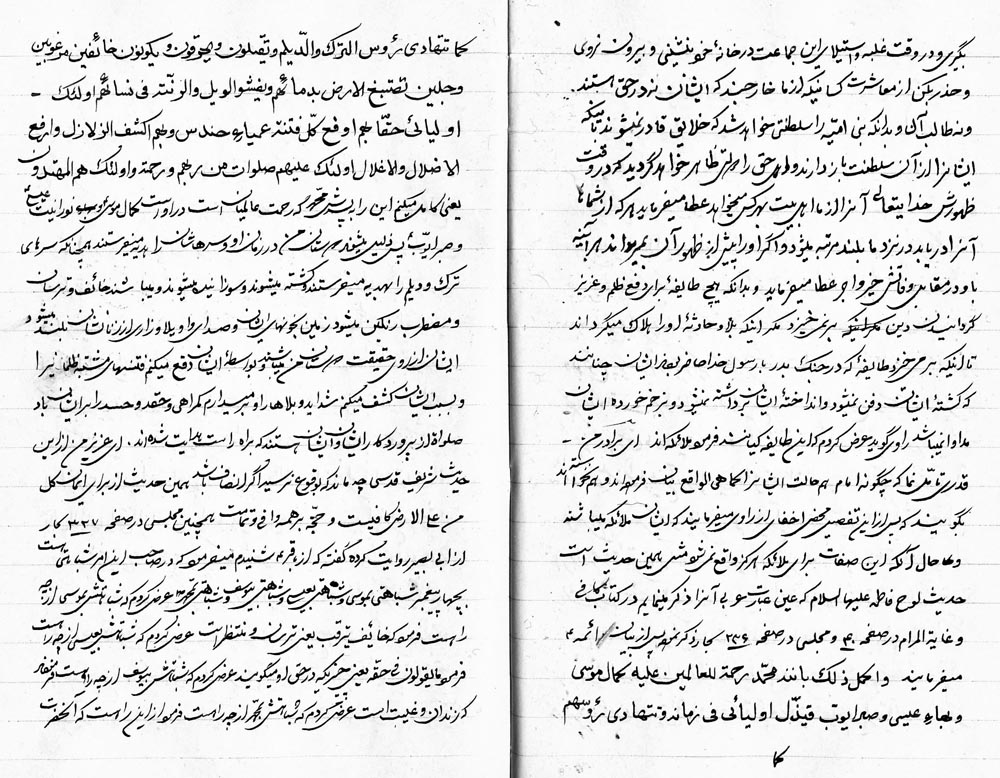 بگیری و در وقت غلبه و استیلای این جماعت در خانهٔ خود نشینی و بیرون نروی
و حذر کن از معاشرت کسانیکه از ما خارجند که ایشان نه در حق استند
و نه طالب آن و بدانکه بنی امیّه را سلطنتی خواهد شد که خلائق قادر نمیشوند تا اینکه
ایشانرا از آن سلطنت بازدارند و اهل حق را دولتی ظاهر خواهد گردید که در وقت
ظهورش خدایتعالی آنرا از ما اهل بیت بهر که میخواهد عطا میفرماید هر که از شما ها
آنرا دریابد در نزد ما بلند مرتبه میشود و اگر او را پیش از ظهور آن بمیراند هر آینه
باو در مقابل وفاتش خیر و اجر عطا میفرماید و بدانکه هیچ طایفهٔ برای دفع ظلم و عزیز
گردانیدن دین بر نمی خیزد مگر اینکه بلا و حادثهٔ او را هلاک میگرداند
تا اینکه برمی خیزد طایفهٔ که در جنک بدر با رسول خدا حاضر بودند ایشان چنانند
که کشتهٔ ایشان دفن نمیشود و انداختهٔ ایشان برداشته نمیشود و زخم خورده ایشان
مداوا نمیباشد راوی گوید عرض کردم که این طایفه کیانند فرمود ملائکه اند ای برادر من -
قدری تأمّل نما که چگونه امام حالت ایشانرا کما هی الواقع بیان فرموده اند
بگویند که پس از این تفصیل محض اخفا از راوی میفرمایند که ایشان ملائکه میباشند
و حال آنکه این صفات برای ملائکه هرگز واقع نمی شود مثل همین حدیث است
حدیث لوح فاطمه علیها السلام که عین عبارت عربی آنرا ذکر مینمایم در کتاب کافی
و غایة المرام در صفحه و مجلسی در صفحه ۳۳۶ بحار ذکر نموده پس از بیان ائمه ع
میفرمایند و اکمل ذلک بابنه محمّد رحمة للعالمین علیه کمال موسی
و بهاء عیسی و صبر ایوب فیذلّ اولیائی فی زمانه و تتهادی رؤسهم
کما
کما تتهادی رؤس الترک و الدیلم و یقتلون و یحرقون و یکونون خائفین مرعوبین
وجلین تصتبغ الارض بدمائهم و یفشو الویل و الرنّة فی نسائهم اولئک -
اولیائی حقّا بهم ادفع کلّ فتنة عمیاء حندس و بهم اکشف الزلازل و ارفع
الاضلال و الاغلال اولئک علیهم صلوات من ربهم و رحمة و اولئک هم المهتدون
یعنی کامل میکنم این را بپسرش محمّد که رحمت عالمیان است در او است کمال موسی و نورانیت عیسی
و صبر ایّوب پس ذلیل میشوند دوستان من در زمان او و سرهاشان را هدیه میفرستند همچنانکه سرهای
ترک و دیلم را بهدیه میفرستند و کشته میشوند و سوزانیده میشوند و میباشند خائف و ترسان
و مضطرب رنگین میشود زمین بخونهای ایشان و صدای واویلا و زاری از زنانشان بلند میشود
ایشان از روی حقیقت دوستان من میباشند و بواسطهٔ ایشان دفع میکنم فتنهای مشتبه ظلمانیرا
و بسبب ایشان کشف میکنم شداید و بلاها را و برمیدارم گمراهی و حقد و حسد را بر ایشان باد
صلواة از پروردکار ایشان و ایشان هستند که براه راست هدایت شده اند. ای عزیز من از این
حدیث شریف قدسی چه مانده که بوقوع نرسید اگر انصاف باشد همین حدیث از برای ایمان کل
من علی الارض کافیست و حجّة بر همه وافی و تمامست همچنین مجلسی در صفحه ۳۳۷ بحار
از ابی بصیر روایت کرده گفته که از باقر ع شنیدم میفرمود که در صاحب این امر شباهتی هست
بچهار پیغمبر شباهتی بموسی و شباهتی بعیسی و شباهتی بیوسف و شباهتی بمحمد ص عرض کردم که شباهتش بموسی از چه
راه است فرمود که خائف یترقب یعنی ترسان و منتظر است عرض کردم که شباهتش بعیسی از چه راه است
فرمود ما یقولون فی حقّه یعنی حرفی که در حق او میگویند عرض کردم که شباهتش بیوسف از چه راه است فرمود
که زندان و غیبت است عرض کردم که شباهتش بمحمد از چه راه است فرمود از این راه است که آنحضرت